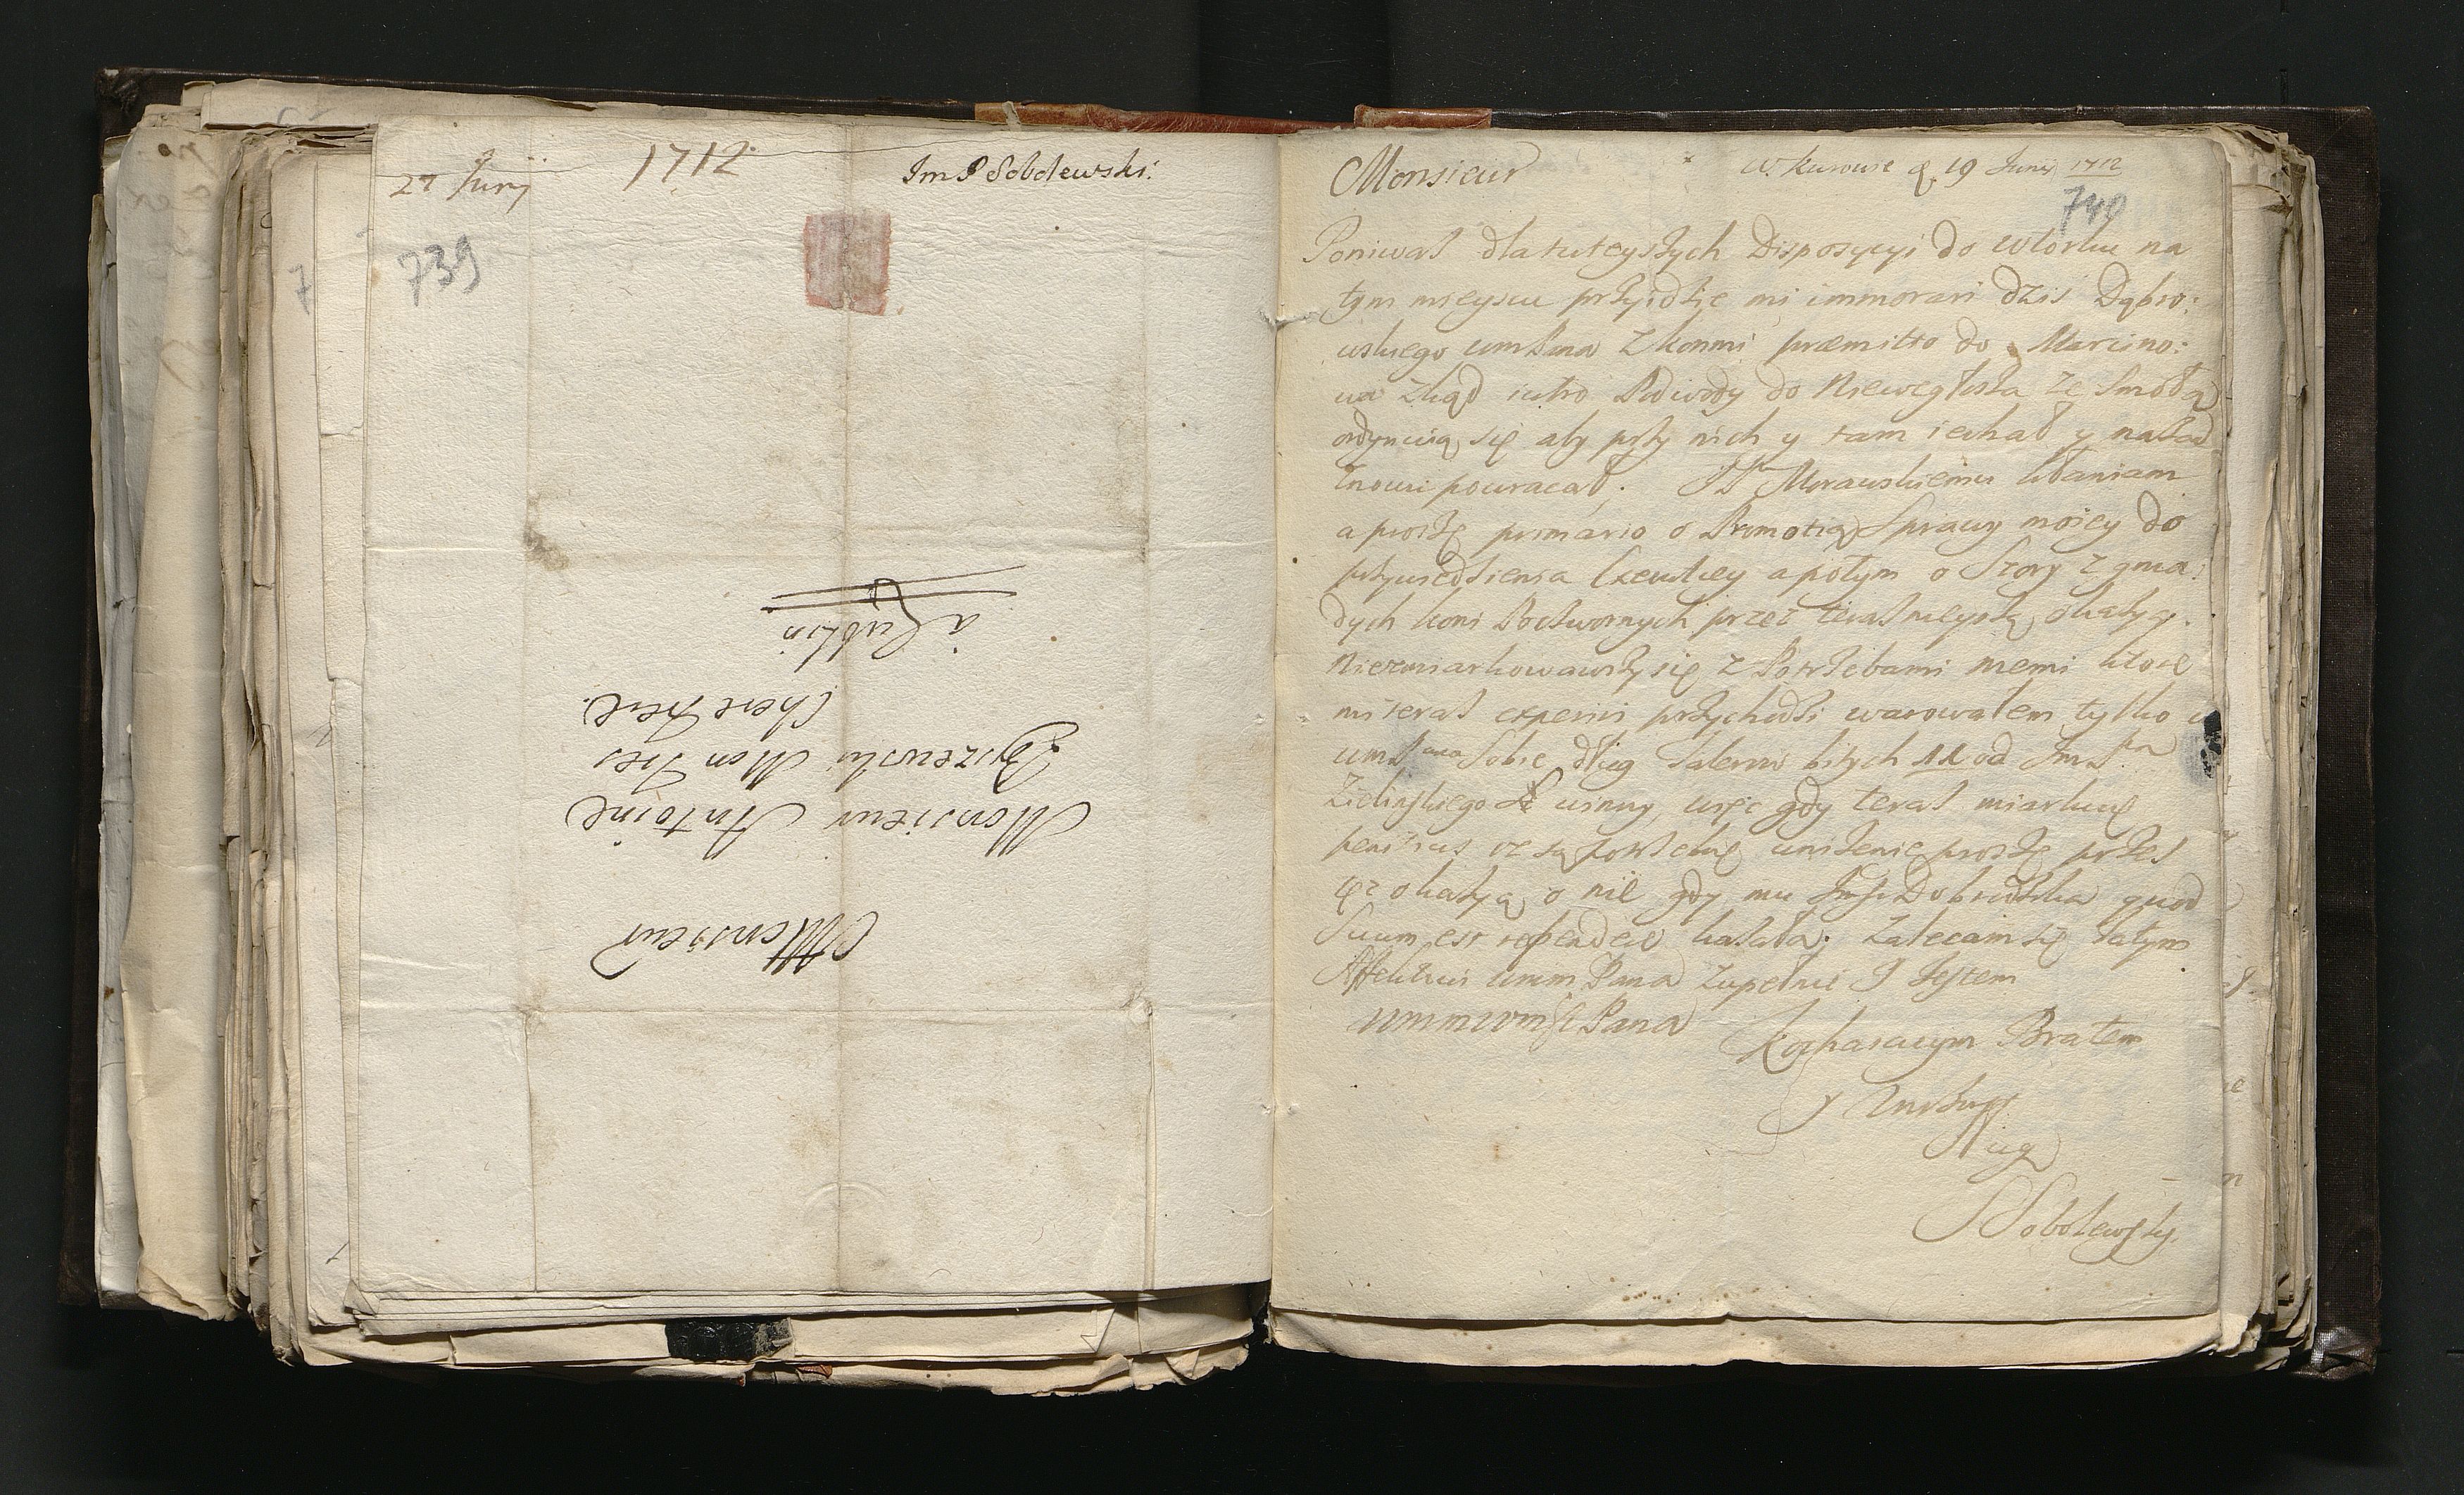 27 Junij 1712 Im P Sobolewski.
739
Monsieur
Monsieur Antoine
Łyszewski Mon Tres
Chere Frere.
à Lublin
Monsieur w Kurowie d. 19 Junij 1712
740
Poniewasz dla tuteyszych Disposycyi do wtorku na
tym mieyscu przyidzie mi immorari dzis Dąbro:
wskiego wm Pana z konmi præmitto do Marcino:
wa zkąd iutro Podwody do Niewęgłosza ze Smołą
ordynuią się aby przy nich y tam iechał y nazad
znowu powracał. Morawskiemu kłaniam
a proszę primario o Promotią Sprawy moiey do
przywiedzienia a potym o Szory z gma:
dych koni Poczwornych przez terasznieyszą okazyą.
Niezmiarkowawszy się z Potrzebami memi ktore
mi teraz experiri przychodzi warowałem tylko
wm Pana Sobie dług Talerow bitych 11 od Im Pa
Zielinskiego winny, więc gdy teraz miarkuię
penitius ze są potrzebne unizenie proszę przez
tęż okazyą o nie gdy mu Dobrodzika quod
Suum est rependere kazała. Zalecam się zatym
Affektowi wmm Pana zupełnie J Jestem
wmmwmsc Pana Kochaiącym Bratem
y Uniż
sługą
SSobolewsky.